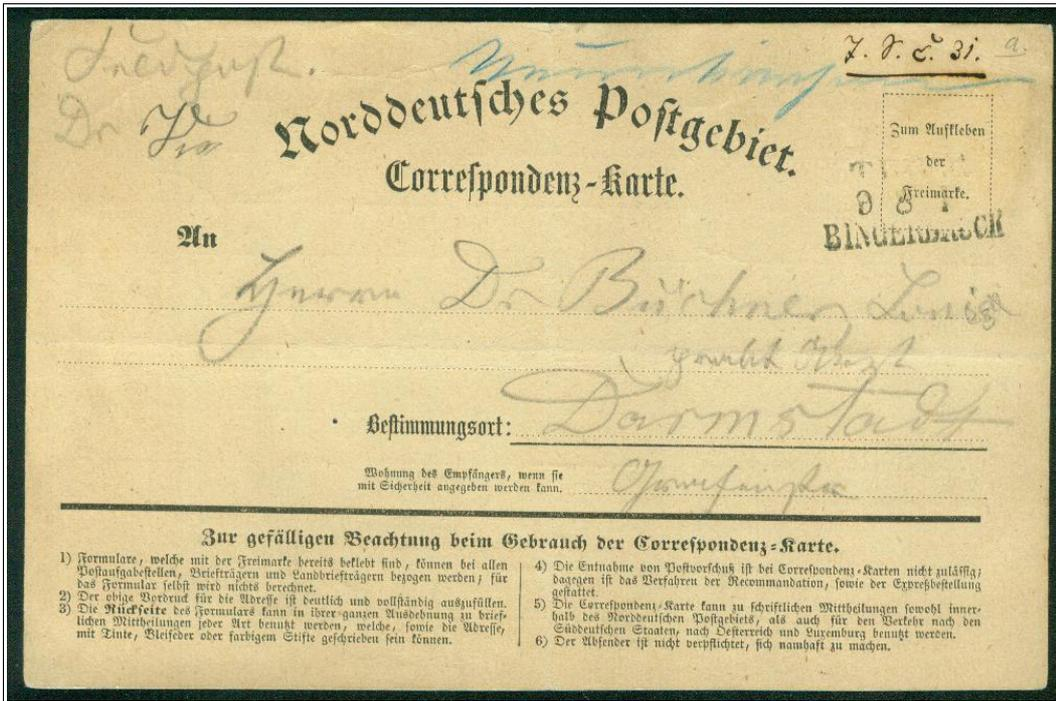 Feldpost.
7. S. č. 31. a.
Dr
Norddeutsches Postgebiet.
Correspondenz-Karte.
Zum Aufkleben
der
Freimarke.
9 8
BINGERBRÜCK
An
Herrn Dr Büchner, Louis
prakt Arzt
Bestimmungsort: Darmstadt
Wohnung des Empfängers, wenn sie
mit Sicherheit angegeben werden kann.
Zur gefälligen Beachtung beim Gebrauch der Correspondenz-Karte.
1) Formulare, welche mit der Freimarke bereits beklebt sind, können bei allen
Postaufgabestellen, Briefträgern und Landbriefträgern bezogen werden; für
das Formular selbst wird nichts berechnet.
2) Der obige Vordruck für die Adresse ist deutlich und vollständig auszufüllen.
3) Die Rückseite des Formulars kann in ihrer ganzen Ausdehnung zu brief-
lichen Mittheilungen jeder Art benutzt werden, welche, sowie die Adresse,
mit Tinte, Bleifeder oder farbigem Stifte geschrieben sein können.
4) Die Entnahme von Postvorschuß ist bei Correspondenz-Karten nicht zulässig;
dagegen ist das Verfahren der Recommandation, sowie der Expreßbestellung
gestattet.
5) Die Correspondenz-Karte kann zu schriftlichen Mittheilungen sowohl inner-
halb des Norddeutschen Postgebiets, als auch für den Verkehr nach den
Süddeutschen Staaten, nach Oesterreich und Luxemburg benutzt werden.
6) Der Absender ist nicht verpflichtet, sich namhaft zu machen.